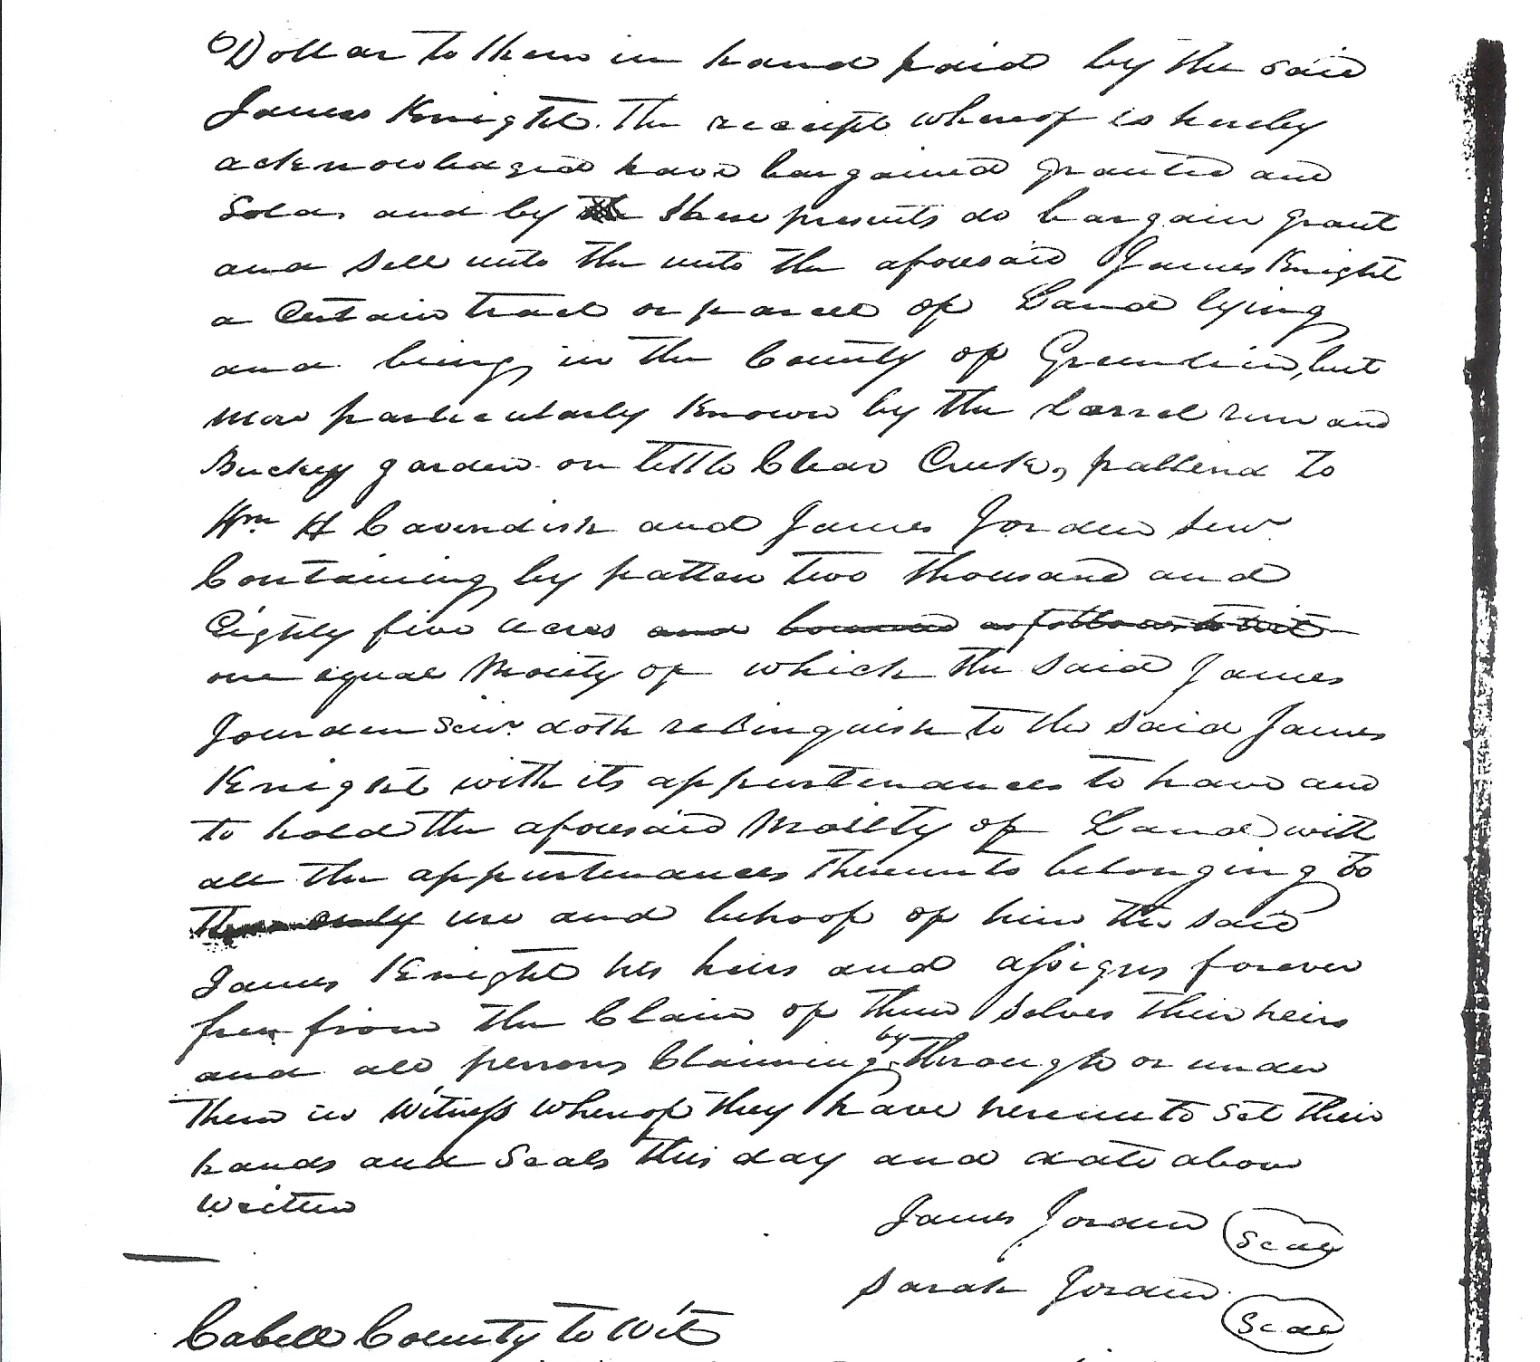 Dollar to them in hand paid by the said
James Knight. The receipt whereof is hereby
acknowledged have bargained granted and
Sold and by these presents do bargain grant
and Sell unto the unto the aforesaid James Knight
a Certain tract or parcel of Land lying
and being in the County of Greenbrier, but
More particularly Known by the Larrel run and
garden on little Clear Creek, pattend to
Wm H Cavendish and James Jorden Senr
Containing by patten two thousand and
Eighty five acres and bounded as follows to wit
one equal Moiety of which the said James
Jourden Senr doth relinquish to the said James
Knight with its appurtenances to have and
to hold the aforesaid Moiety of Land with
all the appurtenances thereunto belonging to
the only use and behoof of him the said
James Knight his heirs and assigns forever
free from the Claim of them Selves their heirs
and all persons Claiming by through or under
them in Witness whereof they have hereunto Set their
hands and Seals this day and date above
Written
James Jorden Seal
Sarah Jorden Seal
Cabell County to Wit